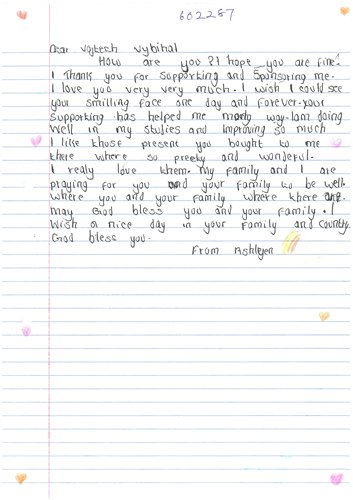 602287
Dear Vojtech Vybihal
How are you? I hope you are fine!
I Thank you for supporting and sponsoring me.
I love you very very much. I wish I could see
your smilling face one day and forever. your
supporting has helped me many way. Iam doing
Well in my studies and improving so much
I like those present you bought to me
there where so preety and wonderful.
I realy love them. my family and I are
praying for you and your family to be well.
where you and your family where there are.
may God bless you and your family. I
Wish a nice day in your family and country.
God bless you.
From Ashleyen